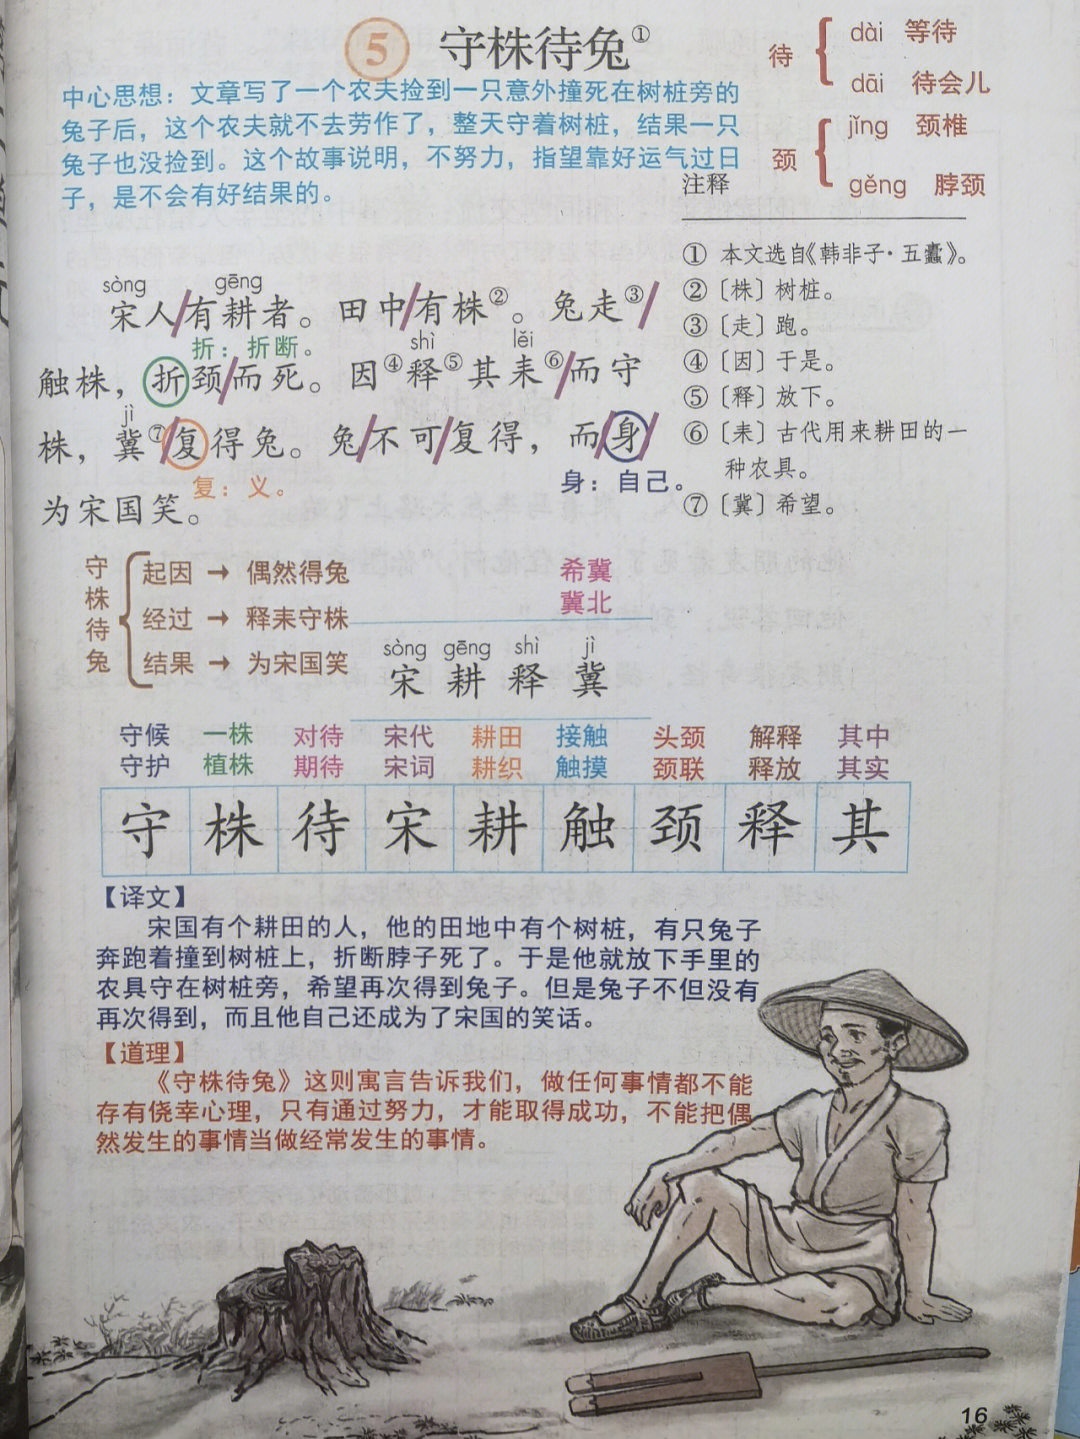 5 守株待兔①
待 { dài 等待
dāi 待会儿
颈 { jǐng 颈椎
gěng 脖颈
中心思想：文章写了一个农夫捡到一只意外撞死在树桩旁的
兔子后，这个农夫就不去劳作了，整天守着树桩，结果一只
兔子也没捡到。这个故事说明，不努力，指望靠好运气过日
子，是不会有好结果的。
sòng gēng
宋人/有耕者。田中/有株②。兔走③/
折：折断。
shì lěi
触株，折颈/而死。因④释⑤其耒⑥/而守
jì
株，冀⑦/复得兔。兔/不可/复得，而/身/
复：义。 身：自己。
为宋国笑。
注释
① 本文选自《韩非子·五蠹》。
②〔株〕树桩。
③〔走〕跑。
④〔因〕于是。
⑤〔释〕放下。
⑥〔耒〕古代用来耕田的一
种农具。
⑦〔冀〕希望。
守株待兔
起因 → 偶然得兔
经过 → 释耒守株
结果 → 为宋国笑
希冀
冀北
sòng gēng shì jì
宋 耕 释 冀
守候 一株 对待 宋代 耕田 接触 头颈 解释 其中
守护 植株 期待 宋词 耕织 触摸 颈联 释放 其实
守 株 待 宋 耕 触 颈 释 其
【译文】
宋国有个耕田的人，他的田地中有个树桩，有只兔子
奔跑着撞到树桩上，折断脖子死了。于是他就放下手里的
农具守在树桩旁，希望再次得到兔子。但是兔子不但没有
再次得到，而且他自己还成为了宋国的笑话。
【道理】
《守株待兔》这则寓言告诉我们，做任何事情都不能
存有侥幸心理，只有通过努力，才能取得成功，不能把偶
然发生的事情当做经常发生的事情。
16